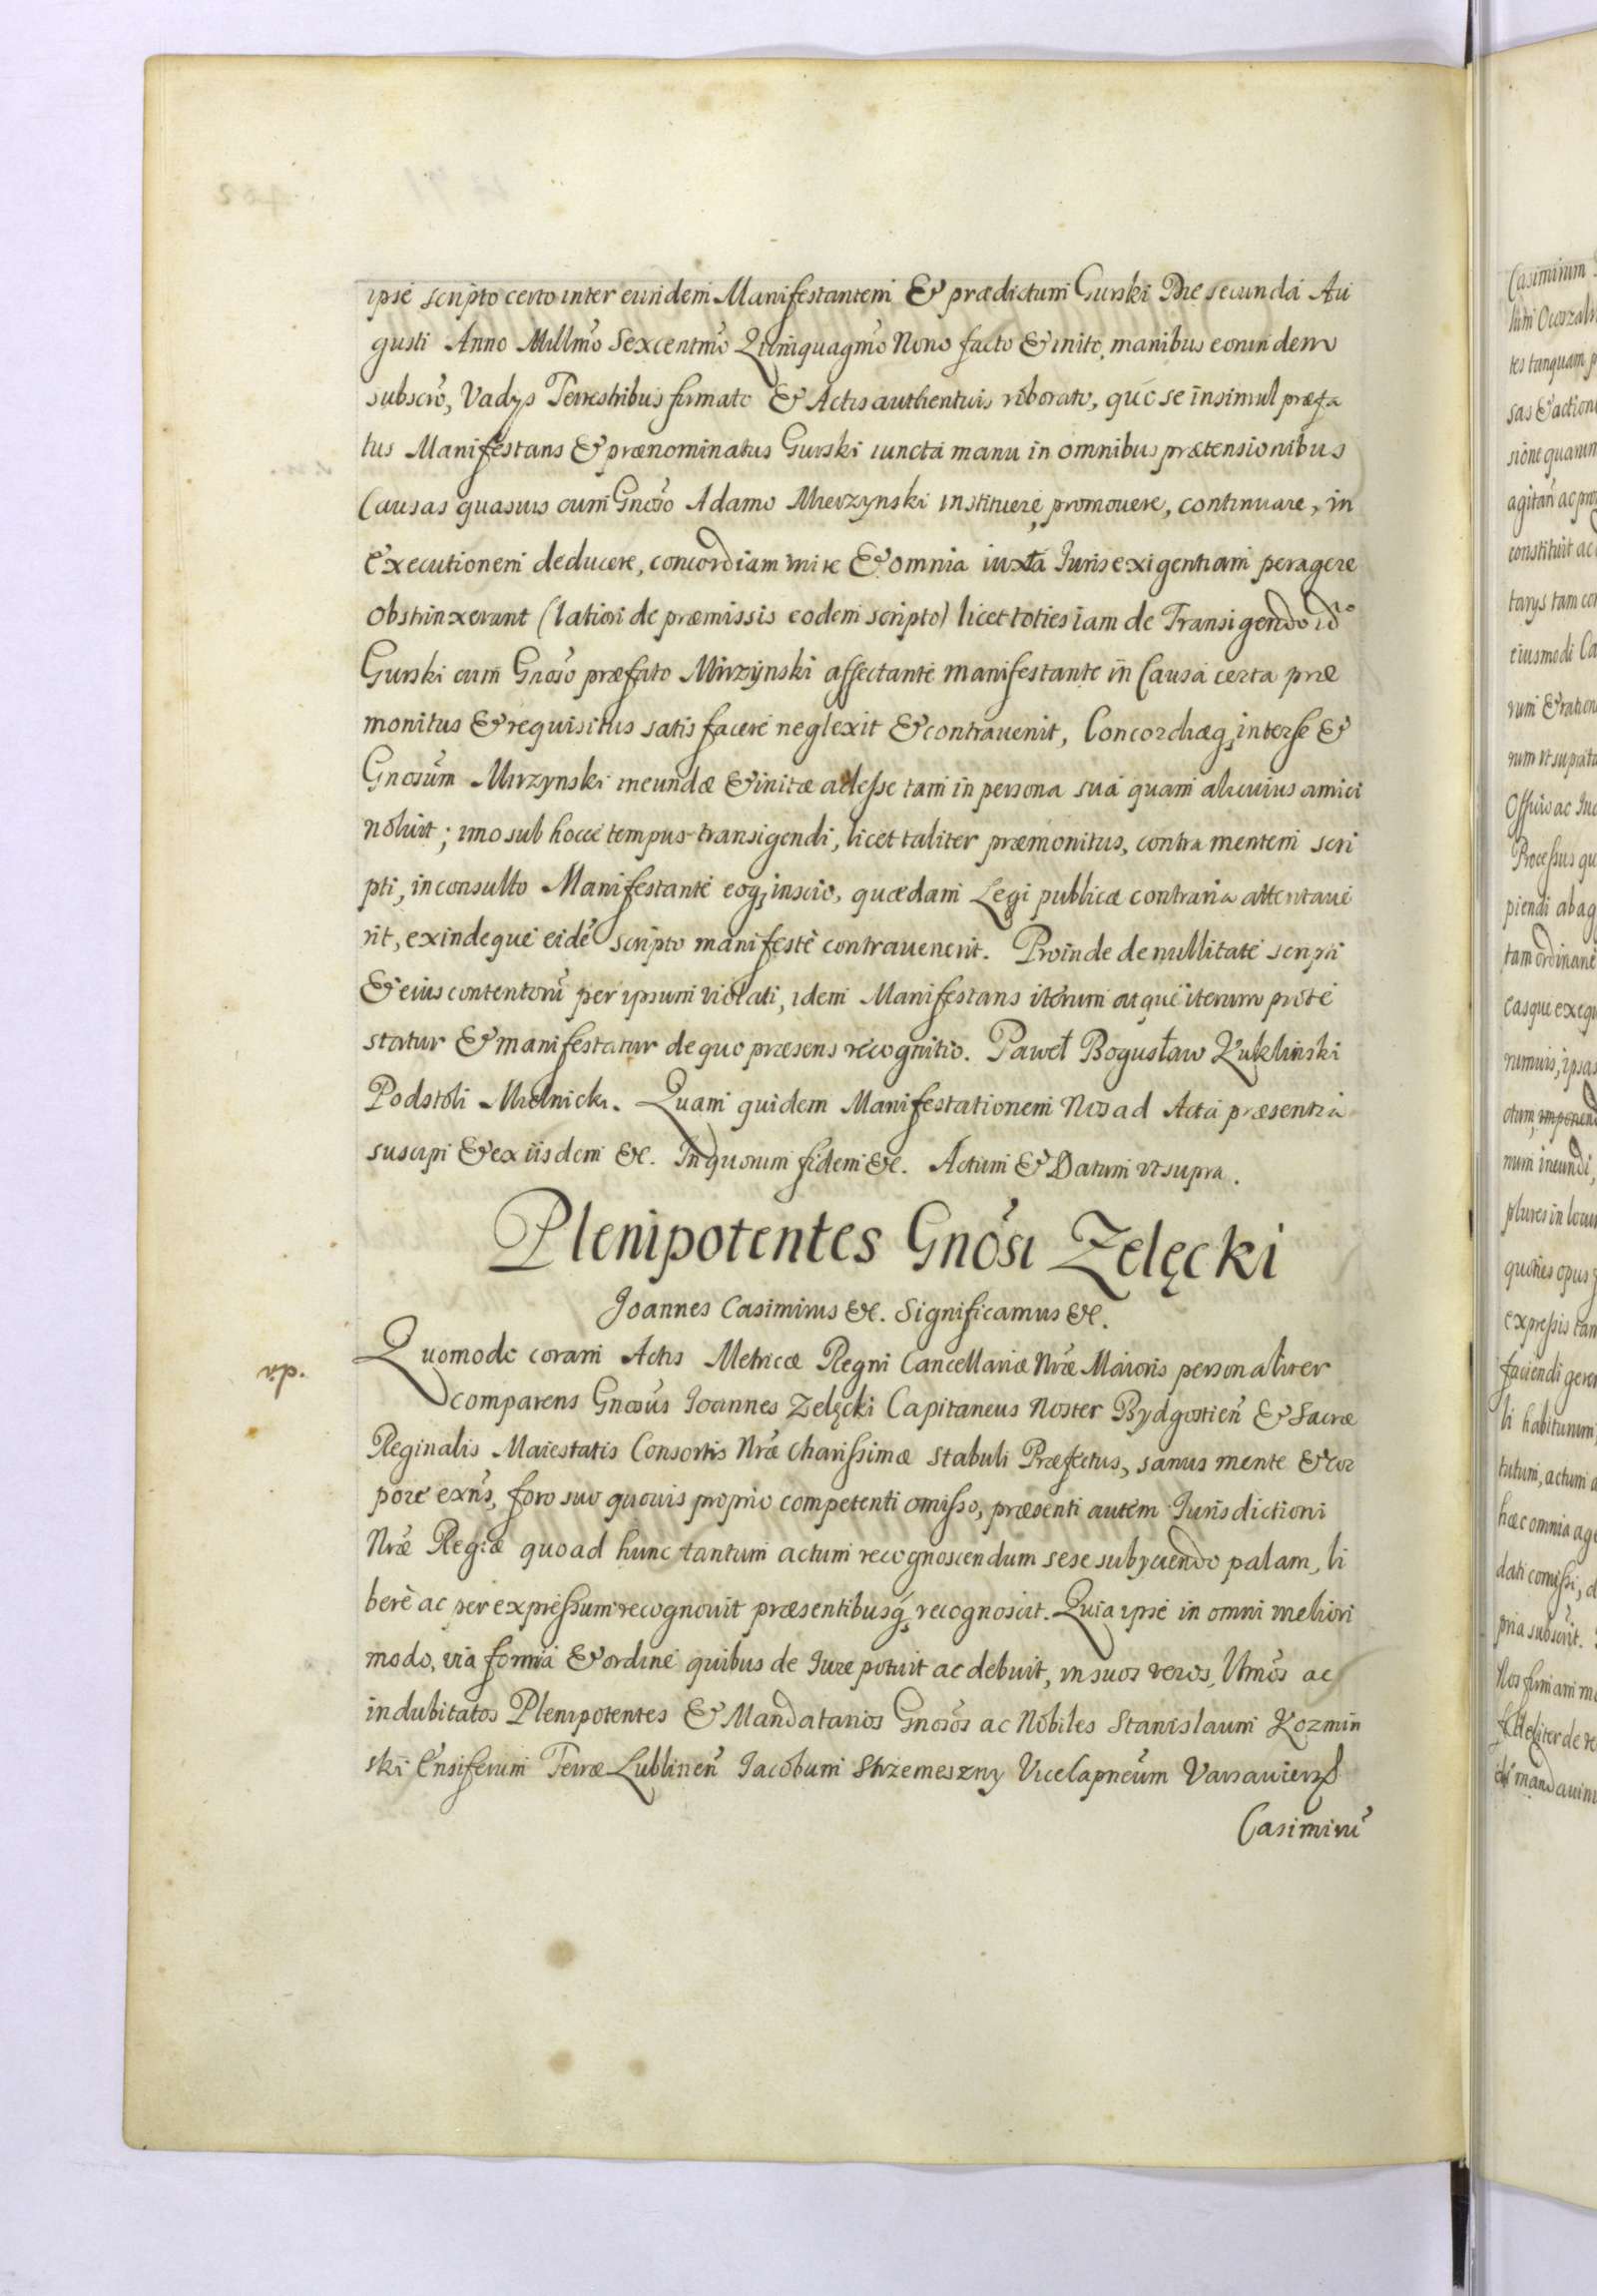 ipse scripto certo inter eundem Manifestantem & prædictum Gurski Die secunda Au
gusti Anno Millm̃o Sexcentm̃o Quinquagm̃o Nono facto & inito, manibus eorundem
subscrõ, Vadys Terrestribus firmato & Actis authenticis roborato, quo se insimul præfa
tus Manifestans & prænominatus Gurski iuncta manu in omnibus prætensionibus
Causas quasuis cum Gnõso Adamo Mierzynski instituere, promouere, continuare, in
executionem deducere, concordiam inire & omnia iuxta Iuris exigentiam peragere
obstrinxerunt (latiori de præmissis eodem scripto) licet toties iam de Transigendo idẽ
Gurski cum Gnõso præfato Mirzynski affectante manifestante in Causa certa præ
monitus & requisitus satis facere neglexit & contrauenit, Concordiæq; inter se &
Gnõsum Mirzynski ineundæ & initæ adesse tam in persona sua quam alicuius amici
noluit; imo sub hocce tempus transigendi, licet taliter præmonitus, contra mentem scri
pti, inconsulto Manifestante eoq; inscio, quædam Legi publicæ contraria attentaue
rit, exindeque eidẽ scripto manifestè contrauenerit. Proinde de nullitate scripti
& eius contentorũ per ipsum violati, idem Manifestans iterum atque iterum prote
statur & manifestatur de quo præsens recognitio. Paweł Bogusław Kukliński
Podstoli Mielnicki. Quam quidem Manifestationem Nos ad Acta præsentia
suscipi & ex iisdem &c. In quorum fidem &c. Actum & Datum vt supra.
Plenipotentes Gnõsi Zelęcki
Joannes Casimirus &c. Significamus &c.
Quomodo coram Actis Metricæ Regni Cancellariæ Nræ̃ Maioris personaliter
comparens Gnõsus Joannes Zelęcki Capitaneus Noster Bydgostieñ & Sacræ
Reginalis Maiestatis Consortis Nræ̃ charissimæ Stabuli Præfectus, sanus mente & cor
pore exñs, foro suo quouis proprio competenti omisso, præsenti autem Iurisdictioni
Nræ̃ Regiæ quo ad hunc tantum actum recognoscendum sese subyciendo palam, li
berè ac per expressum recognouit præsentibusq; recognoscit. Quia ipse in omni meliori
modo, via forma & ordine quibus de Iure potuit ac debuit, in suos veros, Ltm̃os ac
indubitatos Plenipotentes & Mandatarios Gnõsos ac Nobiles Stanislaum Kozmin
ski Ensiferum Terræ Lublineñ Jacobum Strzemeszny ViceCapneũm Varsauien̄
Casimirũ